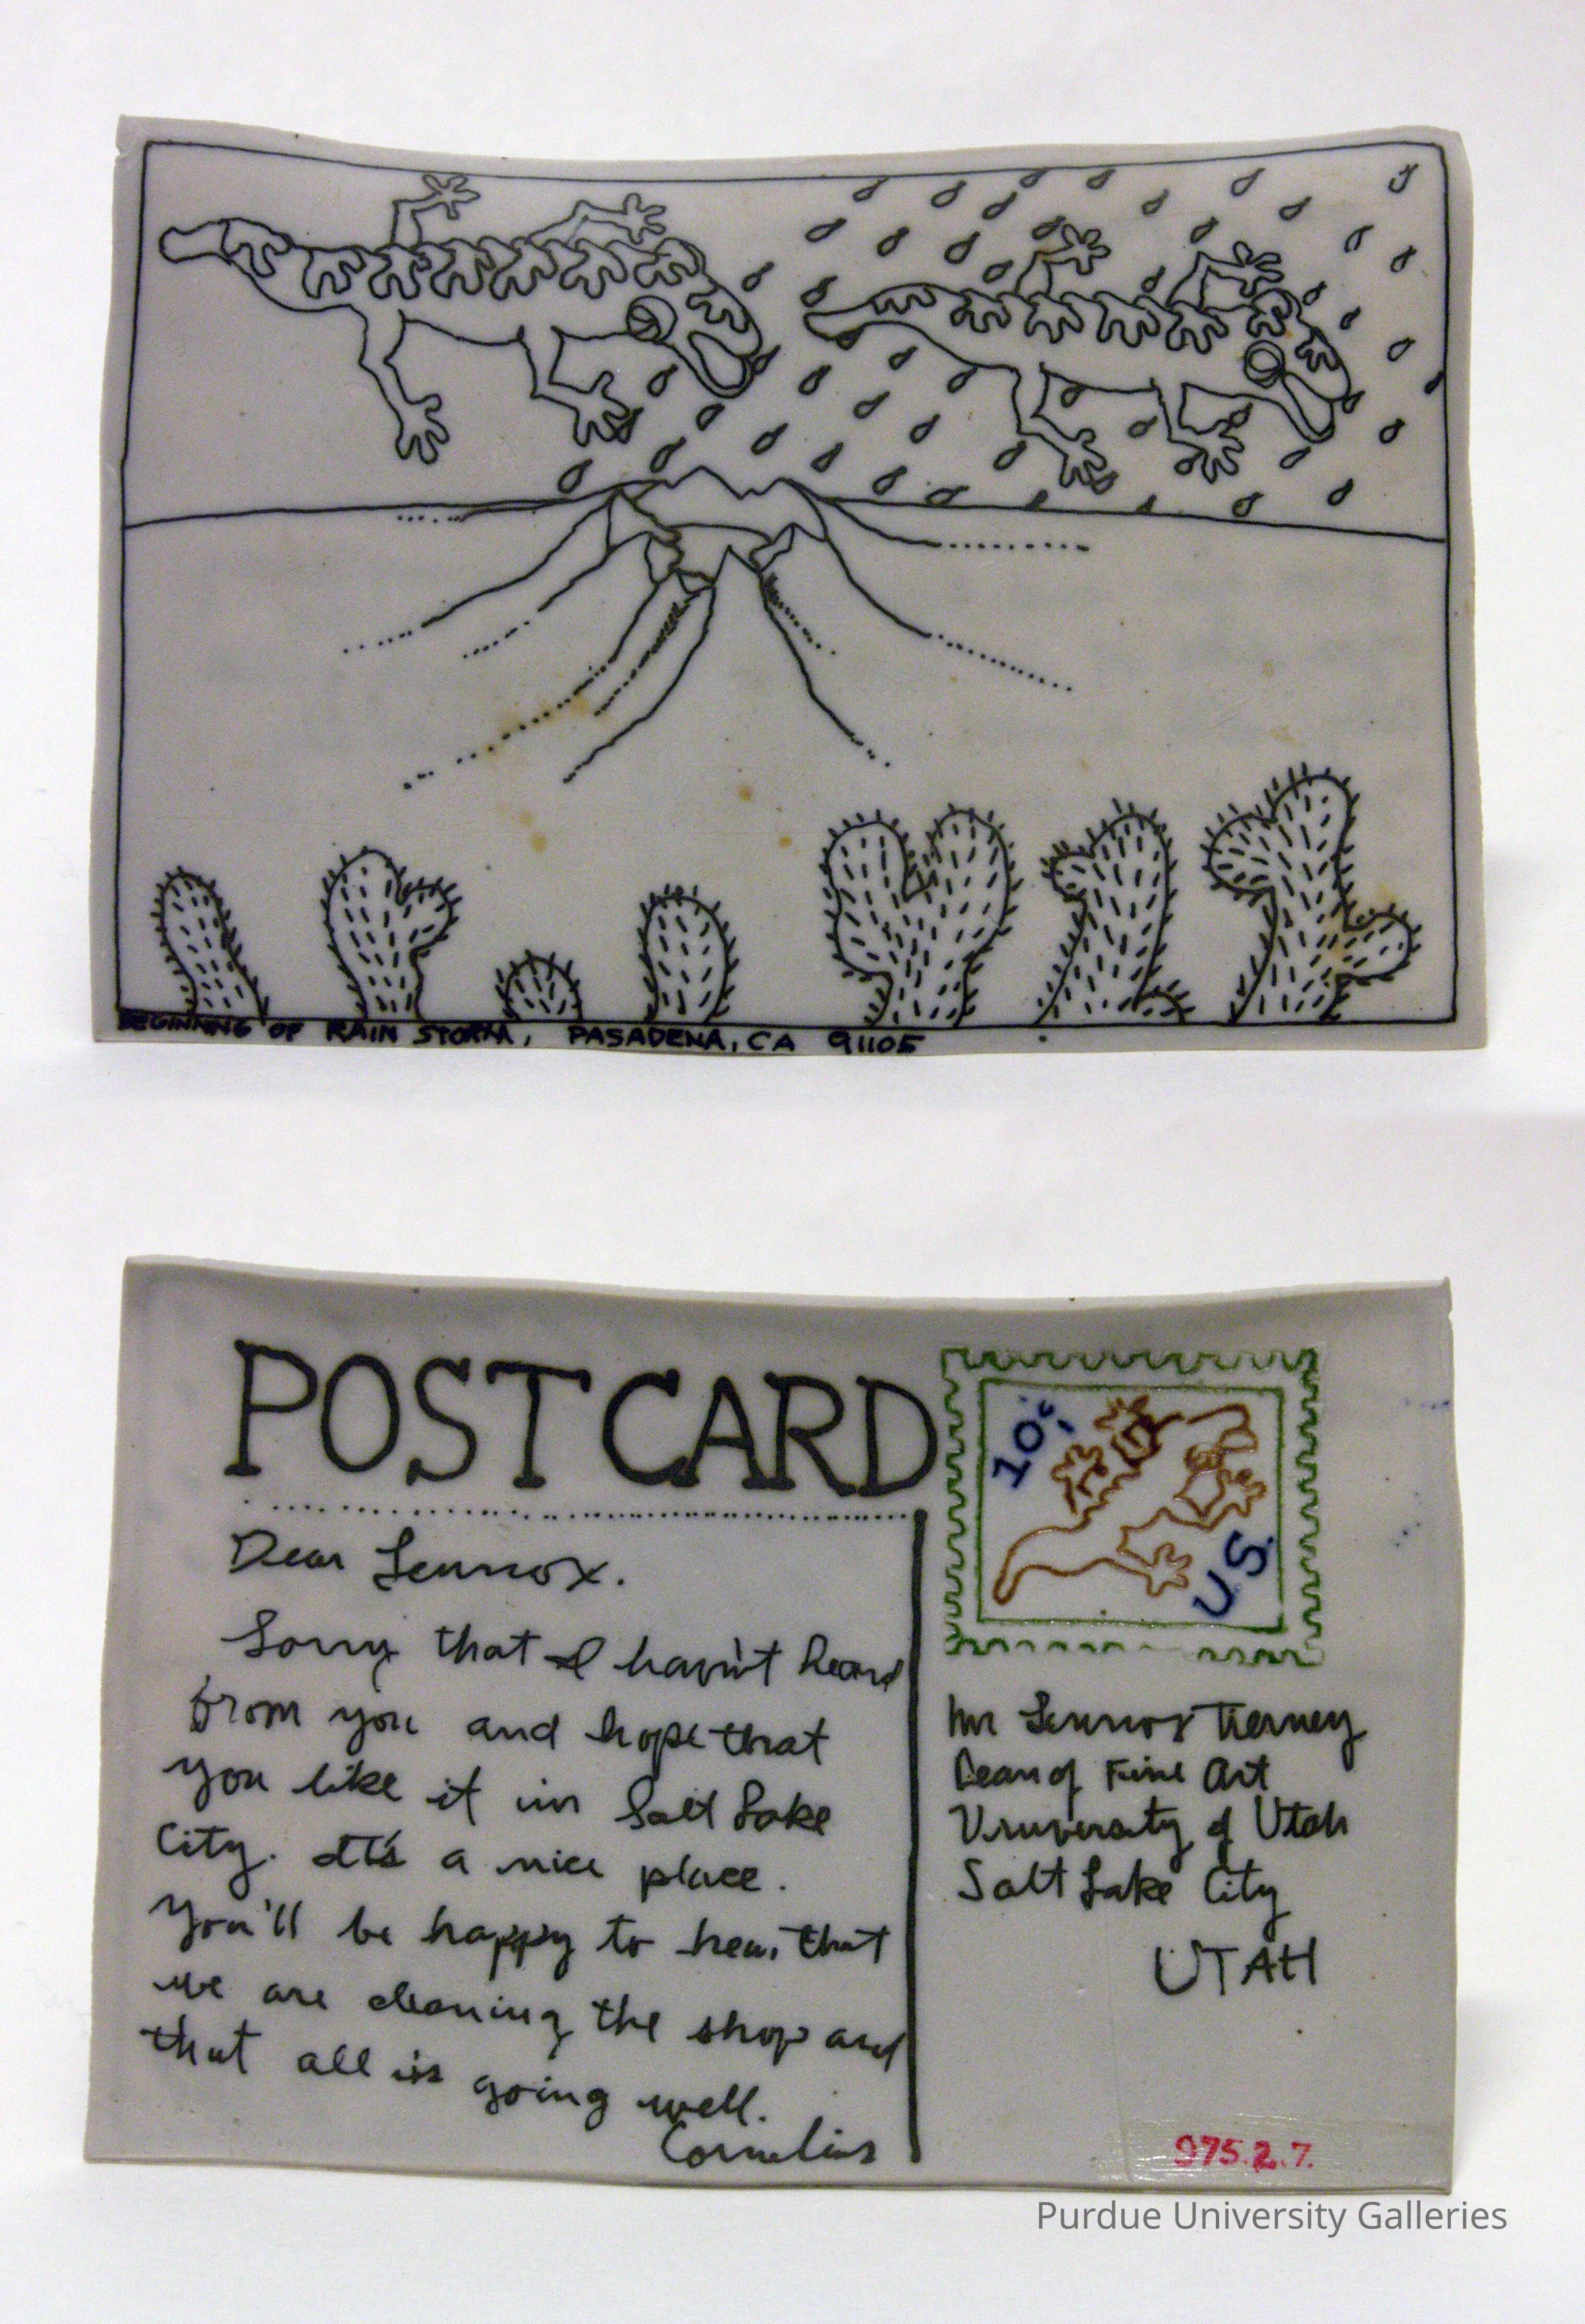 BEGINNING OF RAIN STORM, PASADENA, CA 91105
POSTCARD
10¢
U.S.
Dear Lennox.
Sorry that I havn't heard
from you and hope that
you like it in Salt Lake
City. It's a nice place.
You'll be happy to hear that
we are cleaning the shop and
that all is going well.
Cornelius
Mr Lennox Tierney
Dean of Fine Art
University of Utah
Salt Lake City
UTAH
975.2.7.
Purdue University Galleries